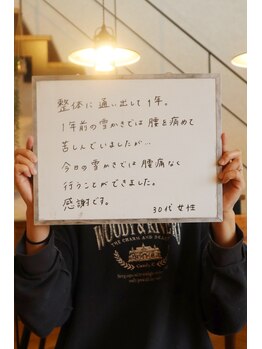 整体に通い出して1年。
1年前の雪かきでは腰を痛めて
苦しんでいましたが…
今日の雪かきでは腰痛なく
行うことができました。
感謝です。
30代女性
WOODY & RIVERY
THE CHARM AND BEAUTY